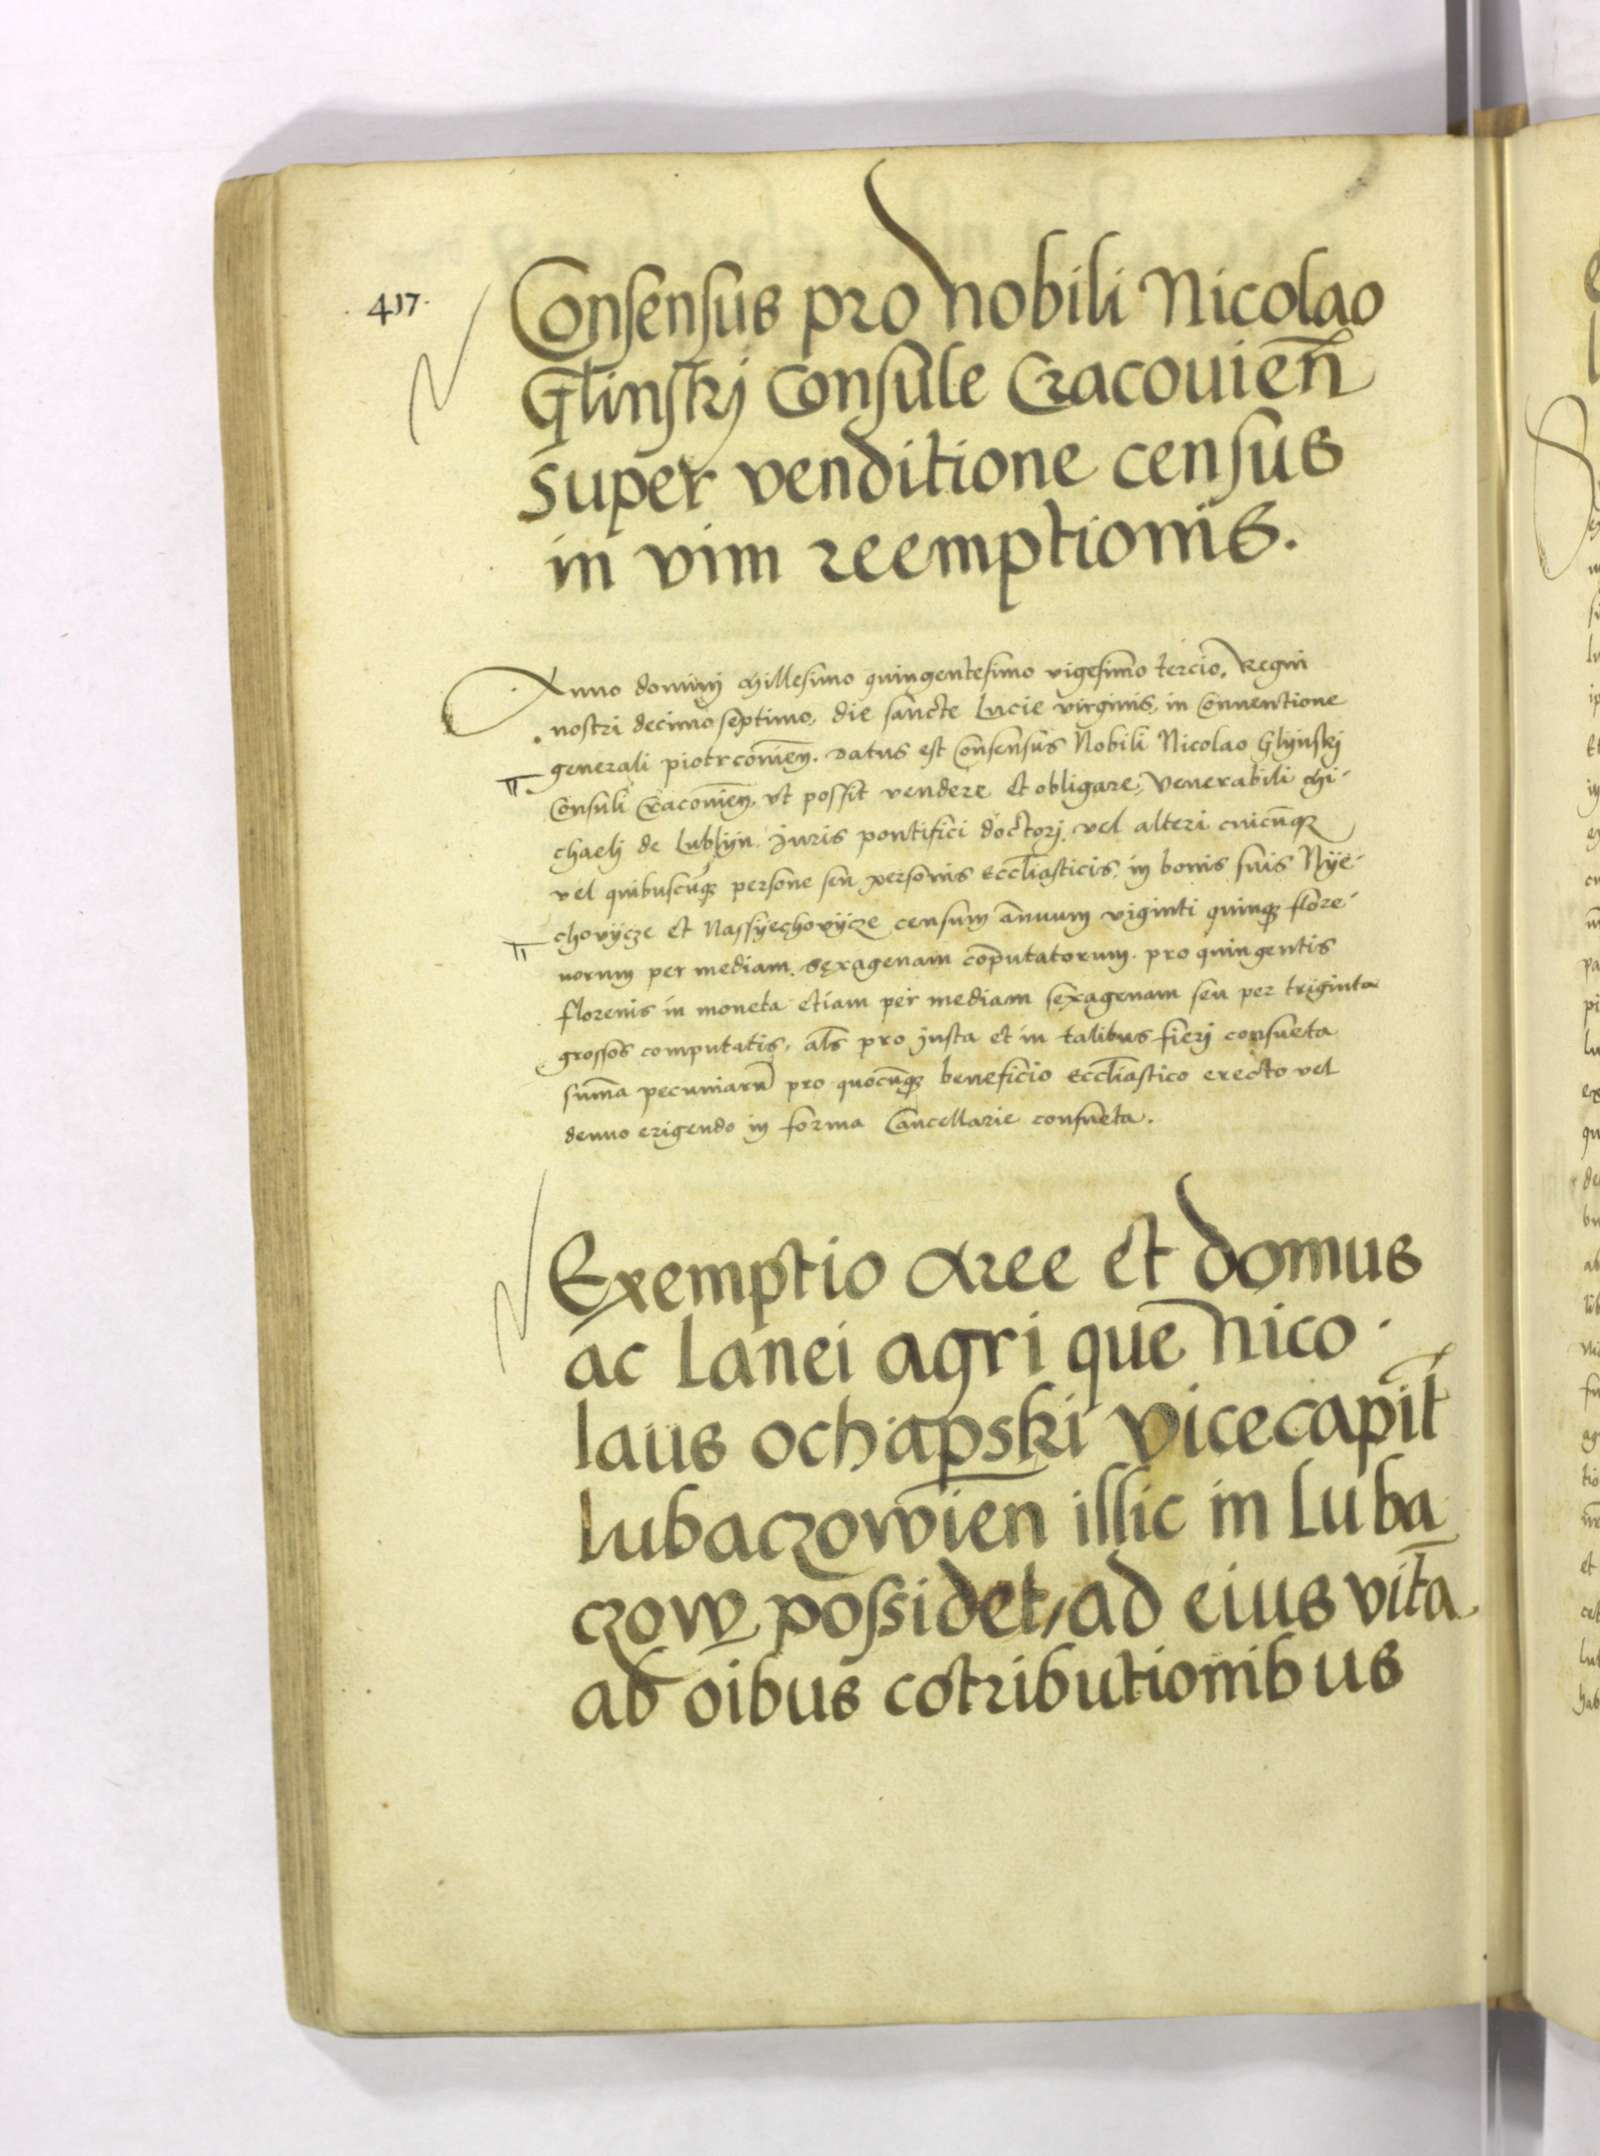 417.
Consensus pro nobili Nicolao
Glinskj Consule Cracouien̄
super venditione census
in vim reemptionis.
Anno dominj Millesimo quingentesimo vigesimo tercio, Regni
nostri decimo septimo, die sancte Lucie virginis, in Conuentione
generali piotrcouien̄. datus est Consensus Nobili Nicolao Glynskj
Consuli Cracouien̄, vt possit vendere et obligare, Venerabili Mi-
chaelj de Lublyn Juris pontificj doctorj, vel alteri cuicūq̨
vel quibuscūq̨ persone seu personis Eccl̄iasticis, in bonis suis Nye-
chovycze et Nassyechovycze censum annuum viginti quinq̨ flore-
norum per mediam sexagenam cōputatorum. pro quingentis
florenis in moneta etiam per mediam sexagenam seu per triginta
grossos computatis, al̄s pro justa et in talibus fierj consueta
sum̄a pecuniarū pro quocūq̨ beneficio Eccl̄iastico erecto vel
denuo erigendo in forma Cancellarie consueta.
Exemptio aree et domus
ac lanei agri que nico-
laus ochapski vicecapit̄
lubaczowien̄ illic in Luba
czow possidet, ad eius vitā
ab oībus cōtributionibus